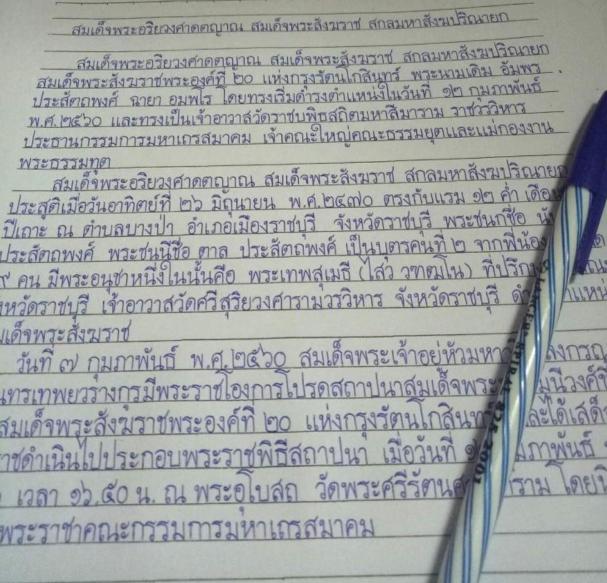 สมเด็จพระอริยวงศาคตญาณ สมเด็จพระสังฆราช สกลมหาสังฆปริณายก
สมเด็จพระอริยวงศาคตญาณ สมเด็จพระสังฆราช สกลมหาสังฆปริณายก
สมเด็จพระสังฆราชพระองค์ที่ ๒๐ แห่งกรุงรัตนโกสินทร์ พระนามเดิม อัมพร
ประสัตถพงศ์ ฉายา อมฺพโร โดยทรงเริ่มดำรงตำแหน่งในวันที่ ๑๒ กุมภาพันธ์
พ.ศ.๒๕๖๐ และทรงเป็นเจ้าอาวาสวัดราชบพิธสถิตมหาสีมาราม ราชวรวิหาร
ประธานกรรมการมหาเถรสมาคม เจ้าคณะใหญ่คณะธรรมยุตและแม่กองงาน
พระธรรมทูต
สมเด็จพระอริยวงศาคตญาณ สมเด็จพระสังฆราช สกลมหาสังฆปริณายก
ประสูติเมื่อวันอาทิตย์ที่ ๒๖ มิถุนายน พ.ศ.๒๔๗๐ ตรงกับแรม ๑๒ ค่ำ เดือน
ปีเถาะ ณ ตำบลบางป่า อำเภอเมืองราชบุรี จังหวัดราชบุรี พระชนกชื่อ
ประสัตถพงศ์ พระชนนีชื่อ ตาล ประสัตถพงศ์ เป็นบุตรคนที่ ๒ จากพี่น้อง
๙ คน มีพระอนุชาหนึ่งในนั้นคือ พระเทพสุเมธี (ไสว วฑฺฒโน) ที่ปรึก
งหวัดราชบุรี เจ้าอาวาสวัดศรีสุริยวงศารามวรวิหาร จังหวัดราชบุรี ดำ แหน่
มเด็จพระสังฆราช
วันที่ ๗ กุมภาพันธ์ พ.ศ.๒๕๖๐ สมเด็จพระเจ้าอยู่หัวมหา ลงกรณ
นทรเทพยวรางกูรมีพระราชโองการโปรดสถาปนาสมเด็จพระ มุนีวงศ์
สมเด็จพระสังฆราชพระองค์ที่ ๒๐ แห่งกรุงรัตนโกสินท และได้เสด็
าชดำเนินไปประกอบพระราชพิธีสถาปนา เมื่อวันที่ ๑ มภาพันธ์
เวลา ๑๖.๕๐ น. ณ พระอุโบสถ วัดพระศรีรัตนศ าราม โดย
พระราชาคณะกรรมการมหาเถรสมาคม